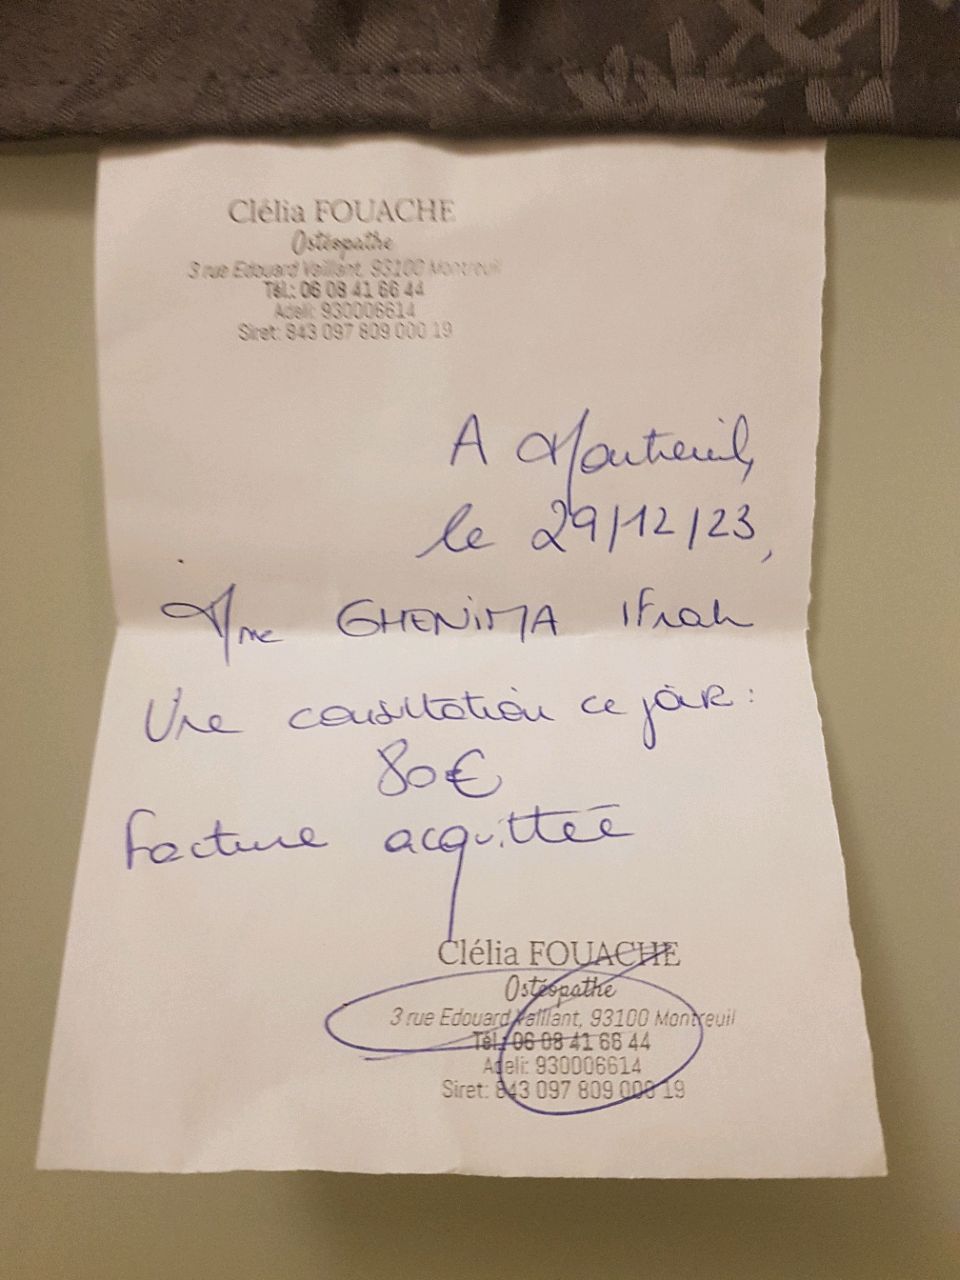 Clélia FOUACHE
Ostéopathe
3 rue Edouard Vaillant, 93100 Montreuil
Tél.: 06 08 41 66 44
Adeli: 930006614
Siret: 843 097 809 000 19
A Montreuil,
le 29/12/23,
Mme GHENIMA Ifrah
Une consultation ce jour :
80€
Facture acquittée
Clélia FOUACHE
Ostéopathe
3 rue Edouard Vaillant, 93100 Montreuil
Tél.: 06 08 41 66 44
Adeli: 930006614
Siret: 843 097 809 000 19